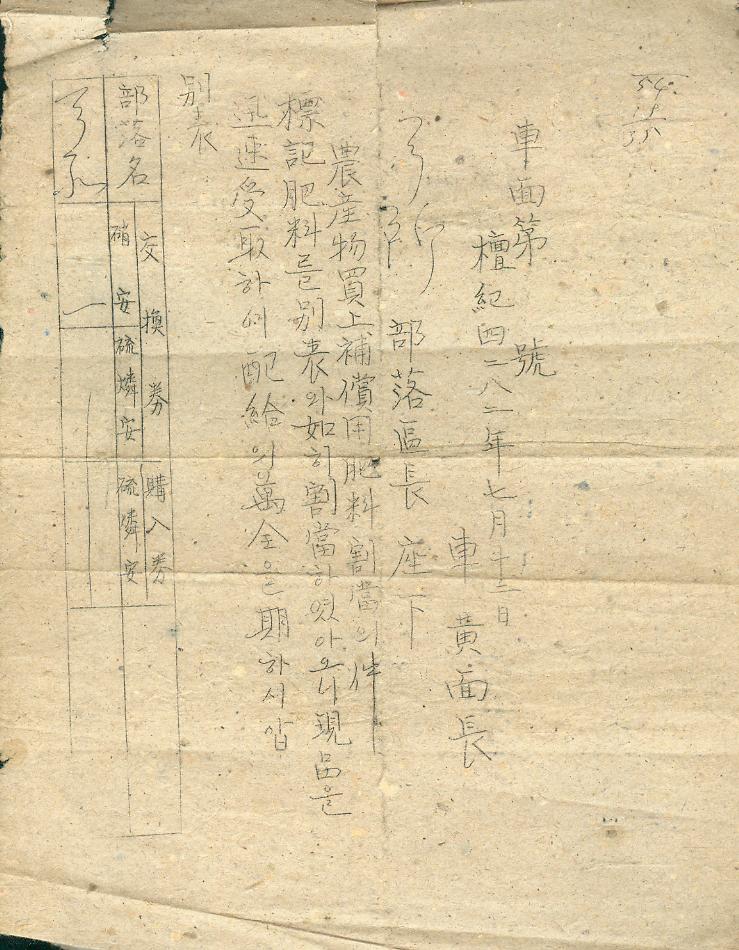 車面第 號
檀紀四二八二年七月十二日
車黃面長
部落區長 座下
農産物買上補償用肥料割當의件
標記肥料를別表와如히割當하였아오니現品을
迅速受取하여配給의萬全을期하시압
別表
交換券 購入券
部落名 硝安 硫燐安 硫燐安
一